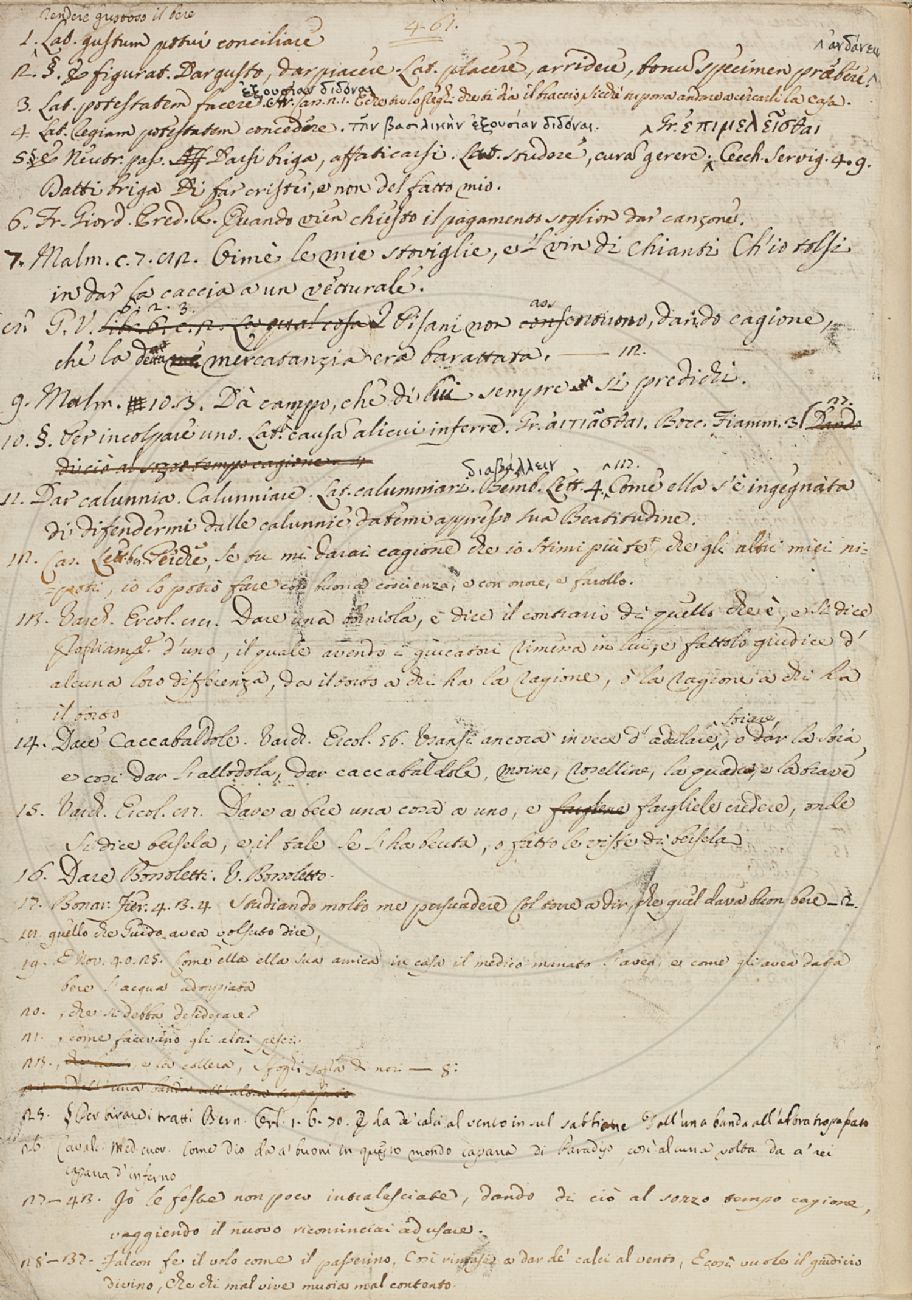 rendere gustoso il bere
461.
1. Lat. gustum potui conciliare
2. §. Per figurat. Dar gusto, dar piacere. Lat. placere, arridere, bonum specimen præbere, ἁνδάνειν
3. Lat. potestatem facere. ἐξουσίαν διδόναι.
4. Lat. legiam potestatem concedere. τὴν βασιλικὴν ἐξουσίαν διδόναι.
5. § E Neutr. pass. Darsi briga, affaticarsi. Lat. studere, curam gerere. Gr. ἐπιμελεῖσθαι Cecch. Servig. 4. 9.
Datti briga Di far cristei, e non del fatto mio.
6. Fr. Giord. Pred. R. Quando vien chiesto il pagamento soglion dar canzone.
7. Malm. c. 7. 12. Oimè le mie stoviglie, e 'l vin di Chianti Ch'io tolsi
in dar la caccia a un vetturale.
G. V. 6. 2. 3. I Pisani non assentirono, dando cagione,
che la detta mercatanzia era barattata. — 12.
9. Malm. 10. 3. Dà campo, che di lui sempre si predichi.
10. §. Per incolpare uno. Lat. causam alicui inferre. Gr. αἰτιᾶσθαι. Bocc. Fiamm. 3. Dando
di ciò al sozzo tempo cagione. 4
11. Dar calunnia. Calunniare. Lat. calumniari. διαβάλλειν Bemb. Lett. 4. Come ella s'è ingegnata
di difendermi dalle calunnie datemi appresso sua Beatitudine.
12. Car. Lett. Sicchè, se tu mi darai cagione che io stimi più te, che gli altri miei ni-
poti, io lo potrò fare con buona coscienza, e con onore, e farollo.
13. Varch. Ercol. Dare una bniola, è dire il contrario di quello che è, e si dice
propriam. d'uno, il quale avendo i giucatori rimessa in lui, e fattolo giudice d'
alcuna loro differenza, dà il torto a chi ha la ragione, o la ragione a chi ha
il torto
14. Dare Caccabaldole. Varch. Ercol. 56. Usansi ancora in vece d'adulare, soiare, o dar la soia,
e così dar l'allodola, dar caccabaldole, moine, roselline, la quadra, e la trave
15. Varch. Ercol. Dare a bere una cosa a uno, e fargliele credere, onde
si dice bersela, e il tale se l'ha beuta, o fatto le viste di bersela
16. Dare Borroletti. V. Borroletto.
17. Bonar. Fier. 4. 3. 4 Studiando molto me persuadere Col torre a dir, che quel dava buon bere — 2.
quello che Guido avea volsuto dire,
19. E Nov. 40. 25. Come ella alla sua amica in casa il medico menato l'avea, e come gli avea data
bere l'acqua adoppiata
20. , che si debba desiderare?
21. , come facevano gli altri pesci.
23. , e la collera, sfogli sopra di noi. — 8.
25. § Per tirare i tratti Bern. Orl. 1. 6. 70. E dà de' calci al vento in sul sabbione Dall'una banda all'altra trapassato
26. Caval. Med. cuor. Come Dio dà a' buoni in questo mondo caparra di Paradiso, così alcuna volta dà a' rei
caparra d'inferno
27 — 42. Io le feste non poco intralasciate, dando di ciò al sozzo tempo cagione,
vaggiendo il nuovo ricominciai ad usare.
28 — 32. Falcon fe il volo come il passerino, Così rimase a dar de' calci al vento, E così vuole il giudicio
divino, Che chi mal vive muoia mal contento.